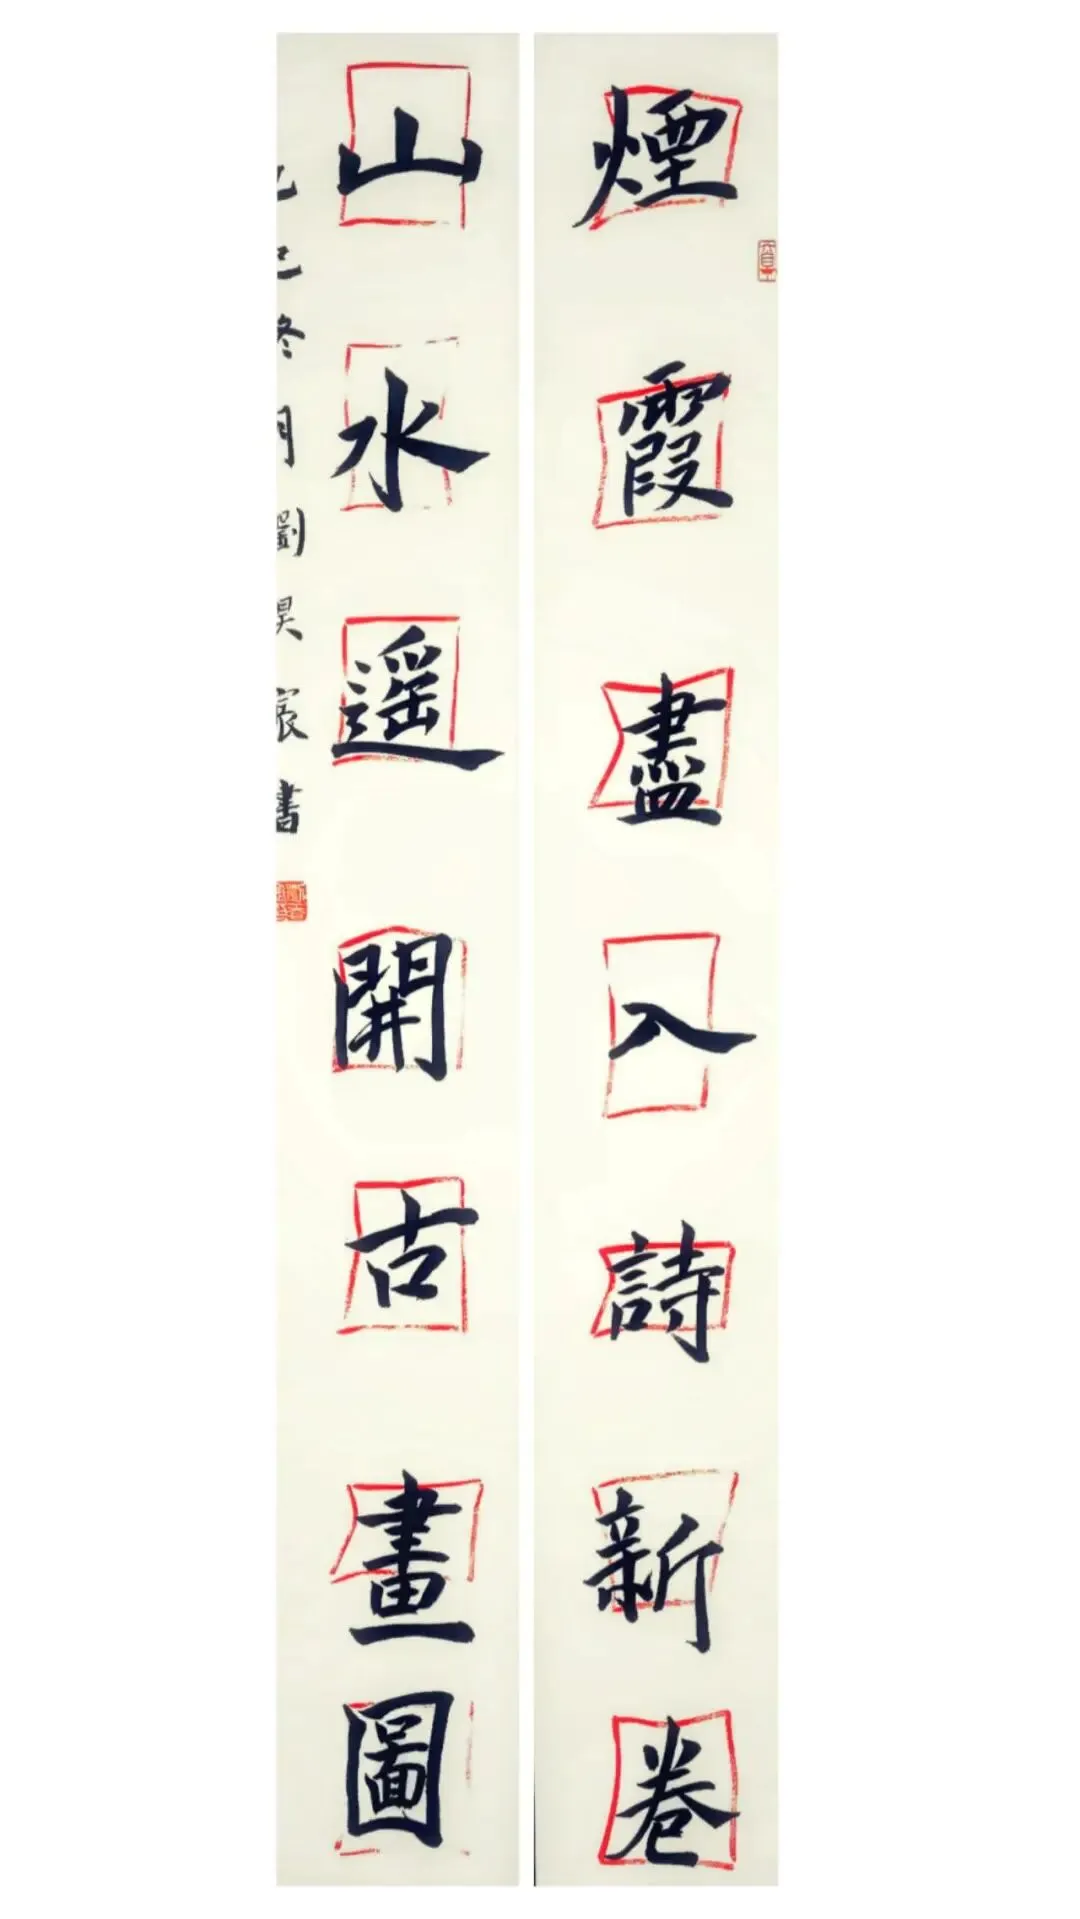 煙霞盡入詩新卷
山水遥開古畫圖
乙巳冬月劉昊宸書